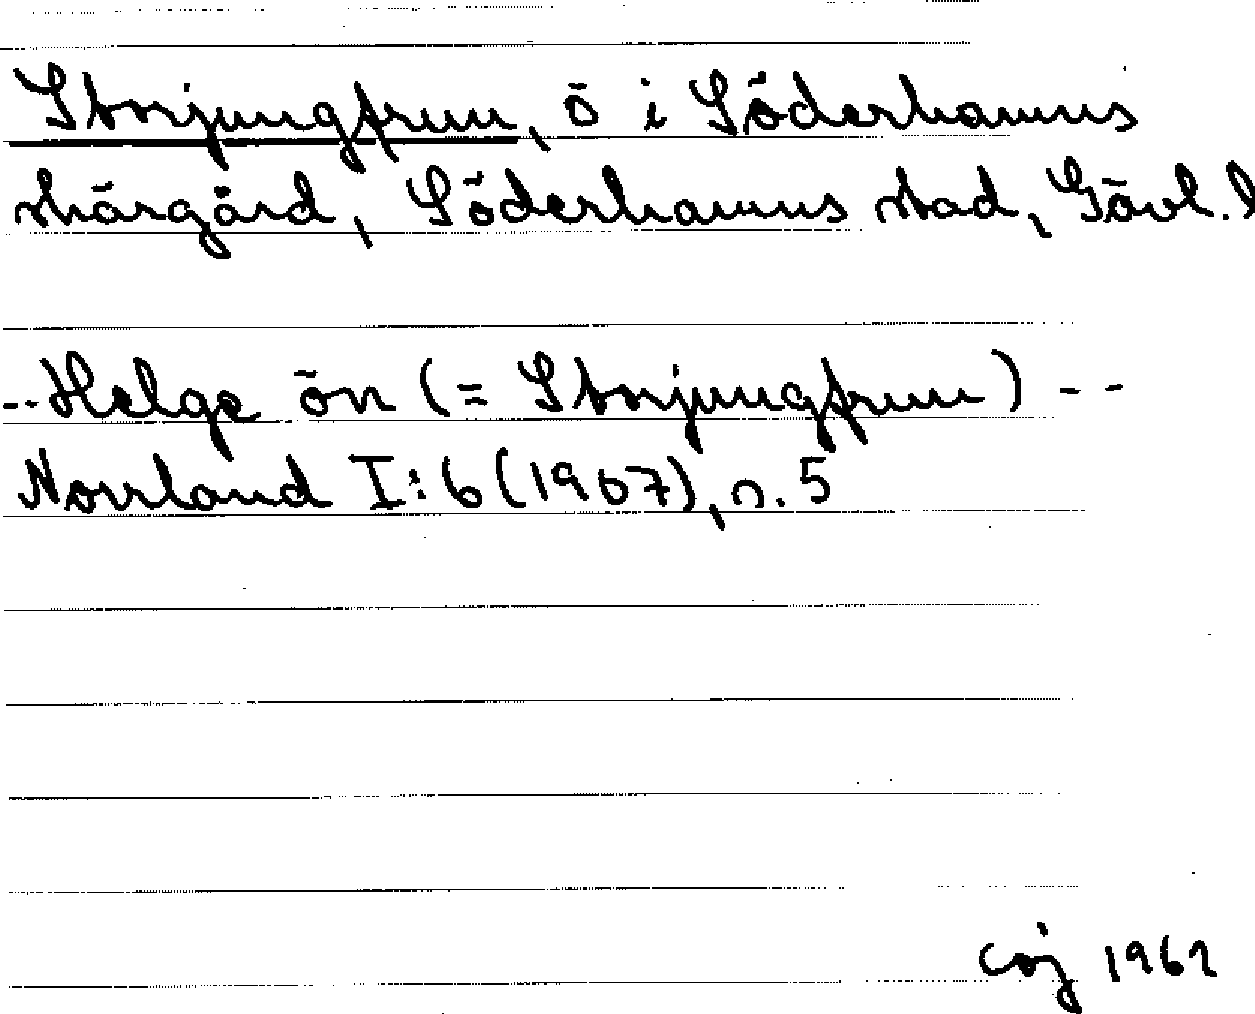 Storjungfrun, ö i Söderhamns
skärgård, Söderhamns stad, Gävl. l
--Helga ön (= Storjungfrun) --
Norrland I:6 (1907), s. 5
1962